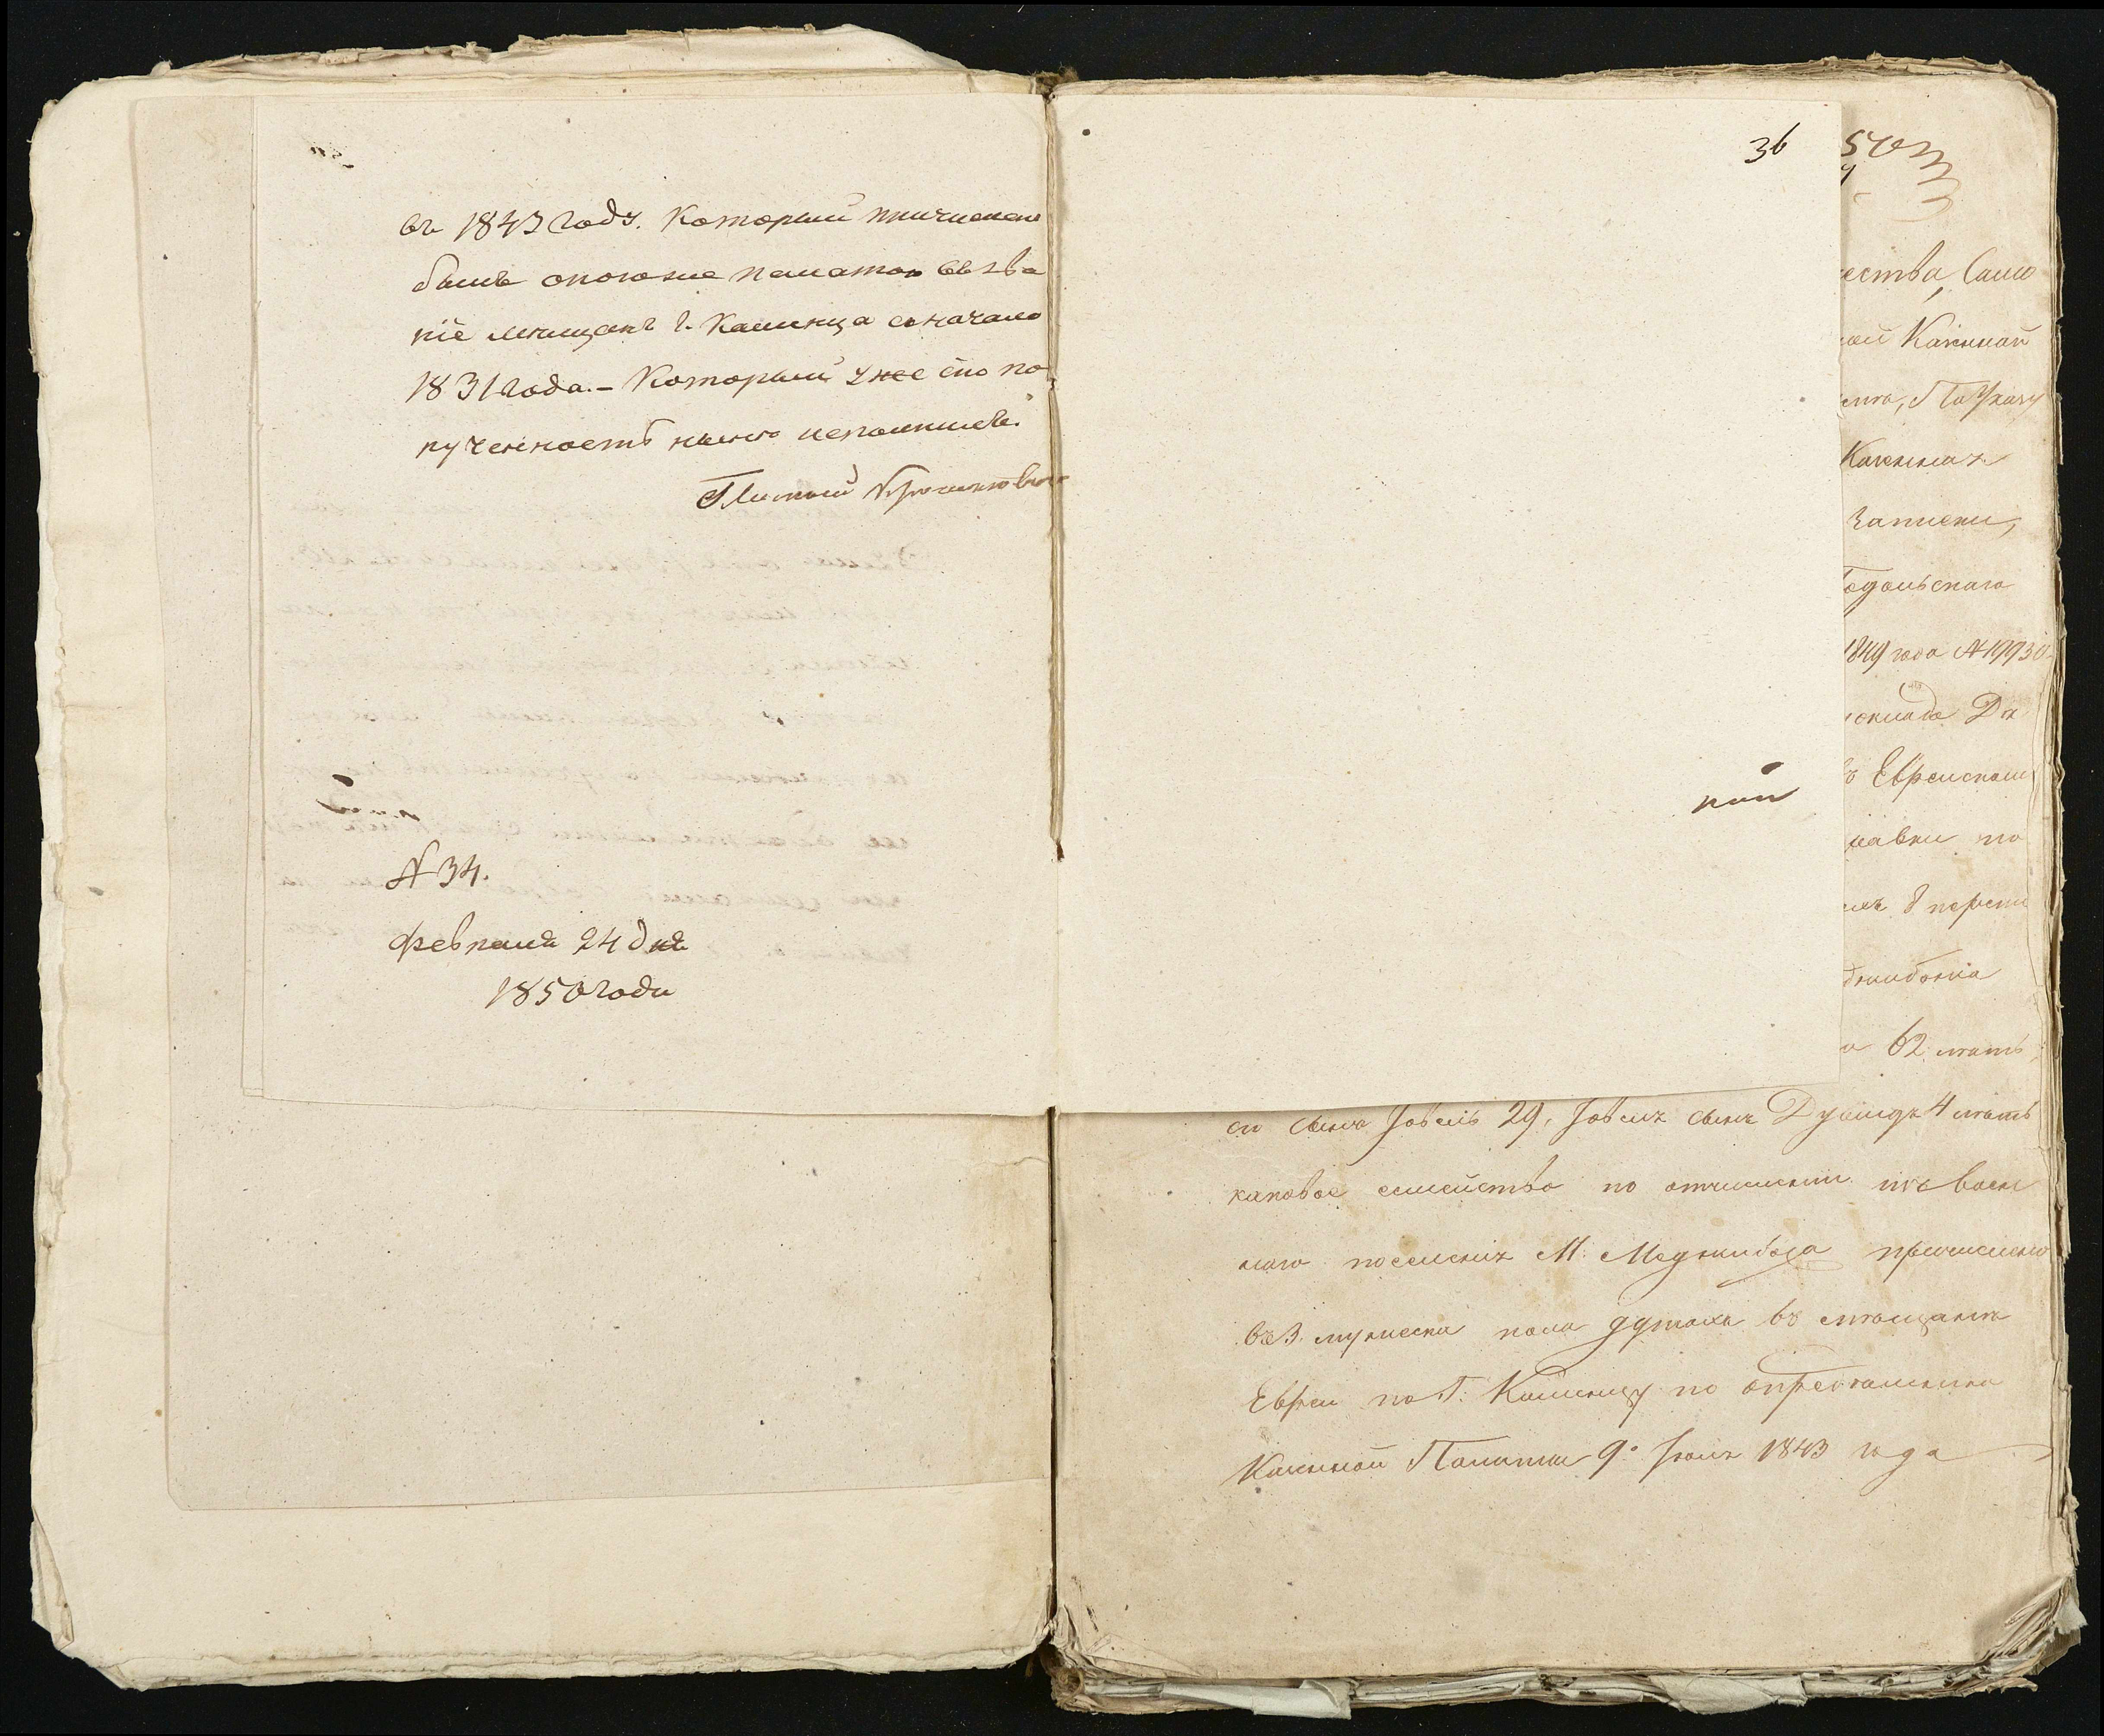 въ 1843 году. Который причислено
былъ оною же палатою въ зва
ніе мещанъ г. Каменца съ начало
1831 года. – Который уже сію по
рученность нынѣ исполнилъ.
N 34.
февраля 24 дня
1850 года
36
ной
50
ества, Само
ой Казенной
По Указу
Казенная
Записки,
одольскаго
1849 года N 19930
Еврейскаго
авки по
62 лѣтъ,
его сынъ Іовель 29, Іовеля сынъ Дувидъ 4 лѣтъ
каковое семейство по отчисленіи изъ воен
наго поселенія М. Меджибожа причислено
въ 3. мужеска пола душахъ въ мѣщане
Евреи по Г. Каменцу по опредѣленію
Казенной Палаты 9. Іюля 1843 года